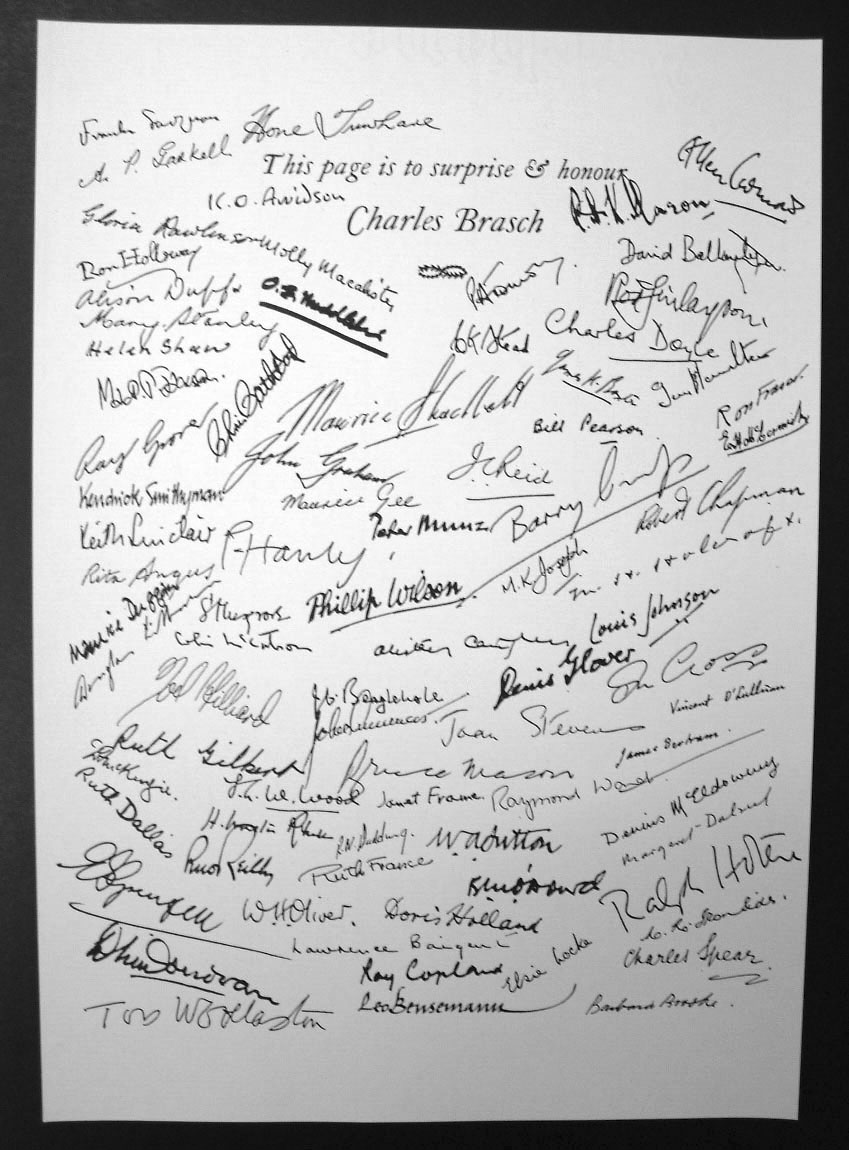 Frank Sargeson
Hone Tuwhare
A. P. Gaskell
This page is to surprise & honour
Charles Brasch
Allen Curnow
K.O. Arvidson
R.A.K. Mason
Gloria Rawlinson
Molly Macalister
David Ballantyne
Ron Holloway
Alison Duff
Mary Stanley
Helen Shaw
CK Stead
Charles Doyle
Chris Cathcart
Maurice Shadbolt
Bill Pearson
Ron Fraser
Ray Grover
John Graham
J.C. Reid
Kendrick Smithyman
Maurice Gee
Keith Sinclair
P. Hanly
Peter Munz
Barry Crump
Robert Chapman
Rita Angus
Phillip Wilson
M.K. Joseph
Maurice Duggan
Colin McCahon
Alistair Campbell
Louis Johnson
Denis Glover
Ian Cross
Noel Hilliard
J.C. Beaglehole
Joan Stevens
Vincent O'Sullivan
James Bertram
Ruth Gilbert
Bruce Mason
Ruth Dallas
S.W. Wood
Janet Frame
Raymond Ward
Dennis McEldowney
Margaret Dalziel
W.A. Sutton
Ruth France
W.H. Oliver
Doris Holland
Ralph Hotere
Lawrence Baigent
Charles Spear
Ray Copland
Elsie Locke
Toss Woollaston
Leo Bensemann
Barbara Brooke